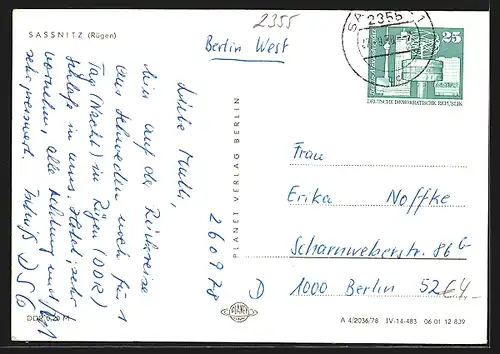 SASSNITZ (Rügen)
2355
Berlin West
2355
25
DEUTSCHE DEMOKRATISCHE REPUBLIK
26 09 78
Liebe Mutti,
bin auf der Rückreise
aus Schweden noch für 1
Tag (Nacht) in Rügen (DDR)
Schlafe in uns. Hotel, sehr
vornehm, alle Achtung und
sehr preiswert.
PLANET VERLAG BERLIN
PLANET
Frau
Erika Noffke
Scharnweberstr. 86 b
D 1000 Berlin 52
DDR 0,20 M
A 4/2036/78 IV-14-483 06 01 12 839